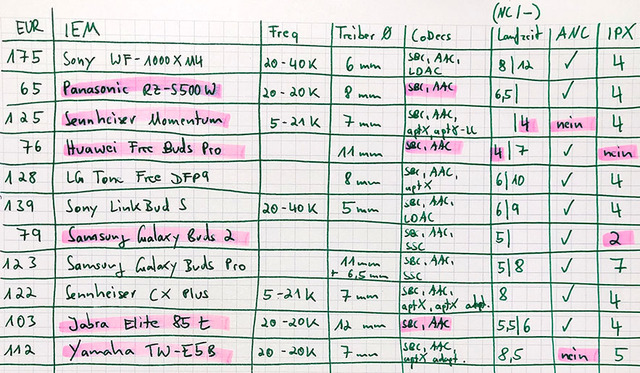 (NC/-)
EUR IEM Freq Treiber Ø CoDecs Laufzeit ANC IPX
175 Sony WF-1000XM4 20-40K 6mm SBC, AAC, LDAC 8/12 ✓ 4
65 Panasonic RZ-S500W 20-20K 8mm SBC, AAC 6,5/ ✓ 4
125 Sennheiser Momentum 5-21K 7mm SBC, AAC, aptX, aptX-LL /4 nein 4
76 Huawei Free Buds Pro 11mm SBC, AAC 4/7 ✓ nein
128 LG Tone Free DFP9 8mm SBC, AAC, aptX 6/10 ✓ 4
139 Sony LinkBud S 20-40K 5mm SBC, AAC, LDAC 6/9 ✓ 4
79 Samsung Galaxy Buds 2 SBC, AAC, SSC 5/ ✓ 2
123 Samsung Galaxy Buds Pro 11mm + 6,5mm SBC, AAC, SSC 5/8 ✓ 7
122 Sennheiser CX Plus 5-21K 7mm SBC, AAC, aptX, aptX adap. 8 ✓ 4
103 Jabra Elite 85t 20-20K 12mm SBC, AAC 5,5/6 ✓ 4
112 Yamaha TW-E5B 20-20K 7mm SBC, AAC, aptX adapt. 8,5 nein 5